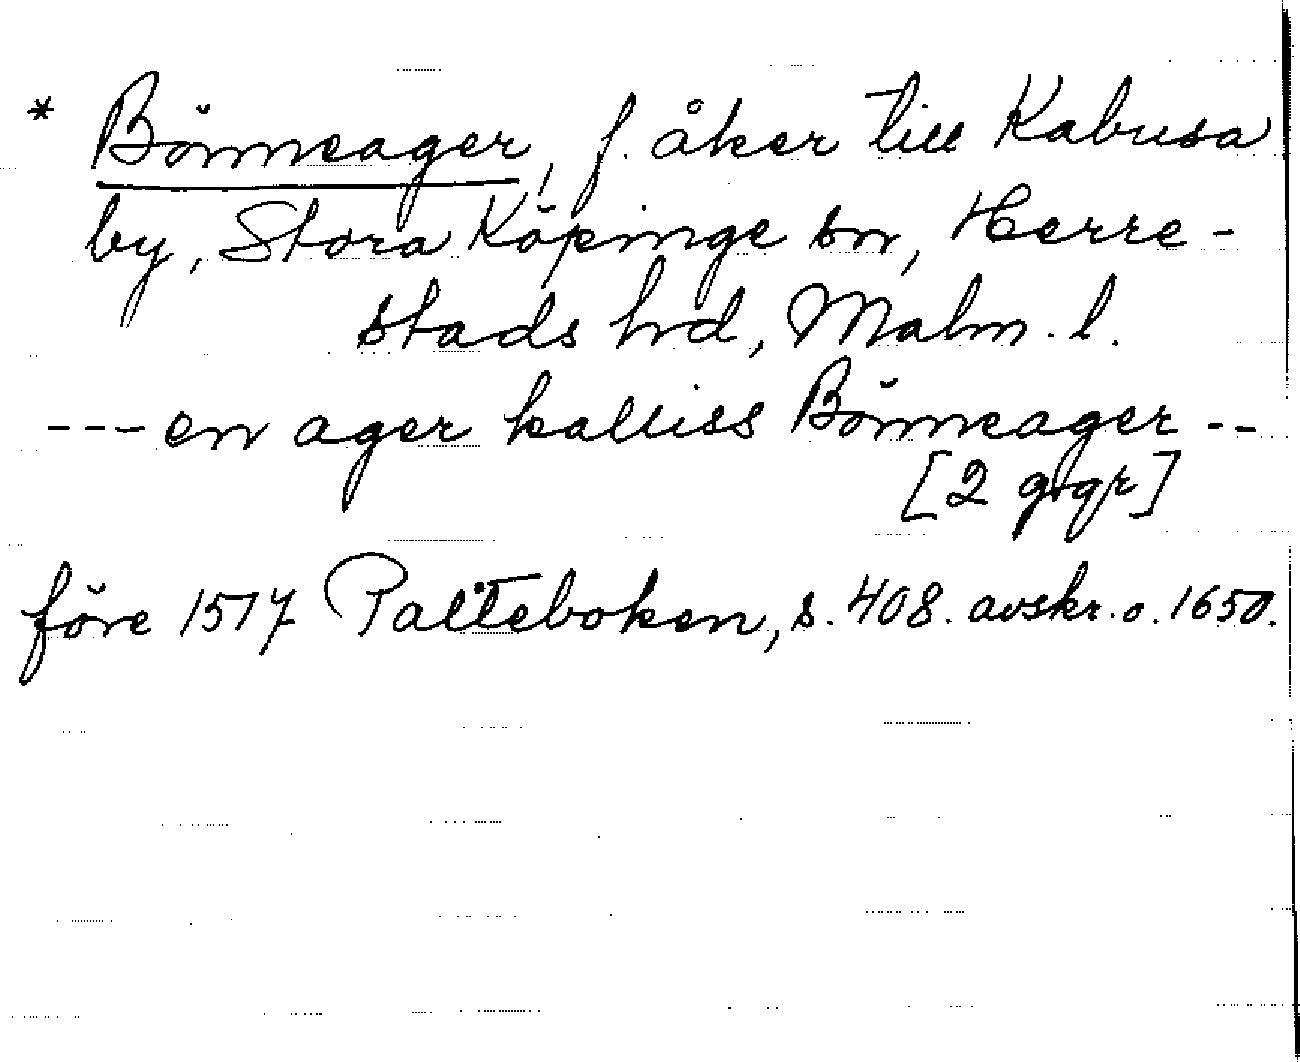 * Bönneager, f. åker till Kabusa
by, Stora Köpinge sn, Herre-
stads hd, Malm. l.
--- en ager kalliss Bönneager --
[2 ggr]
före 1517 Palteboken, s. 408. avskr. o. 1650.